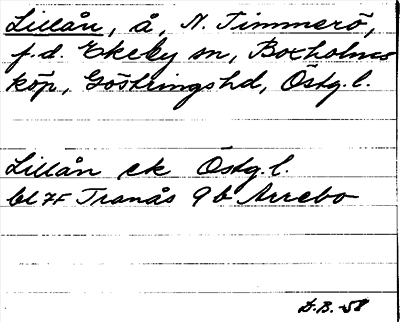 Lillån, å, N. Timmerö,
f.d. Ekeby sn, Boxholms
köp, Göstringshd, Östg.l.
Lillån ek Östg.l.
bl 7F Tranås 9b Arrebo
D.B. -58